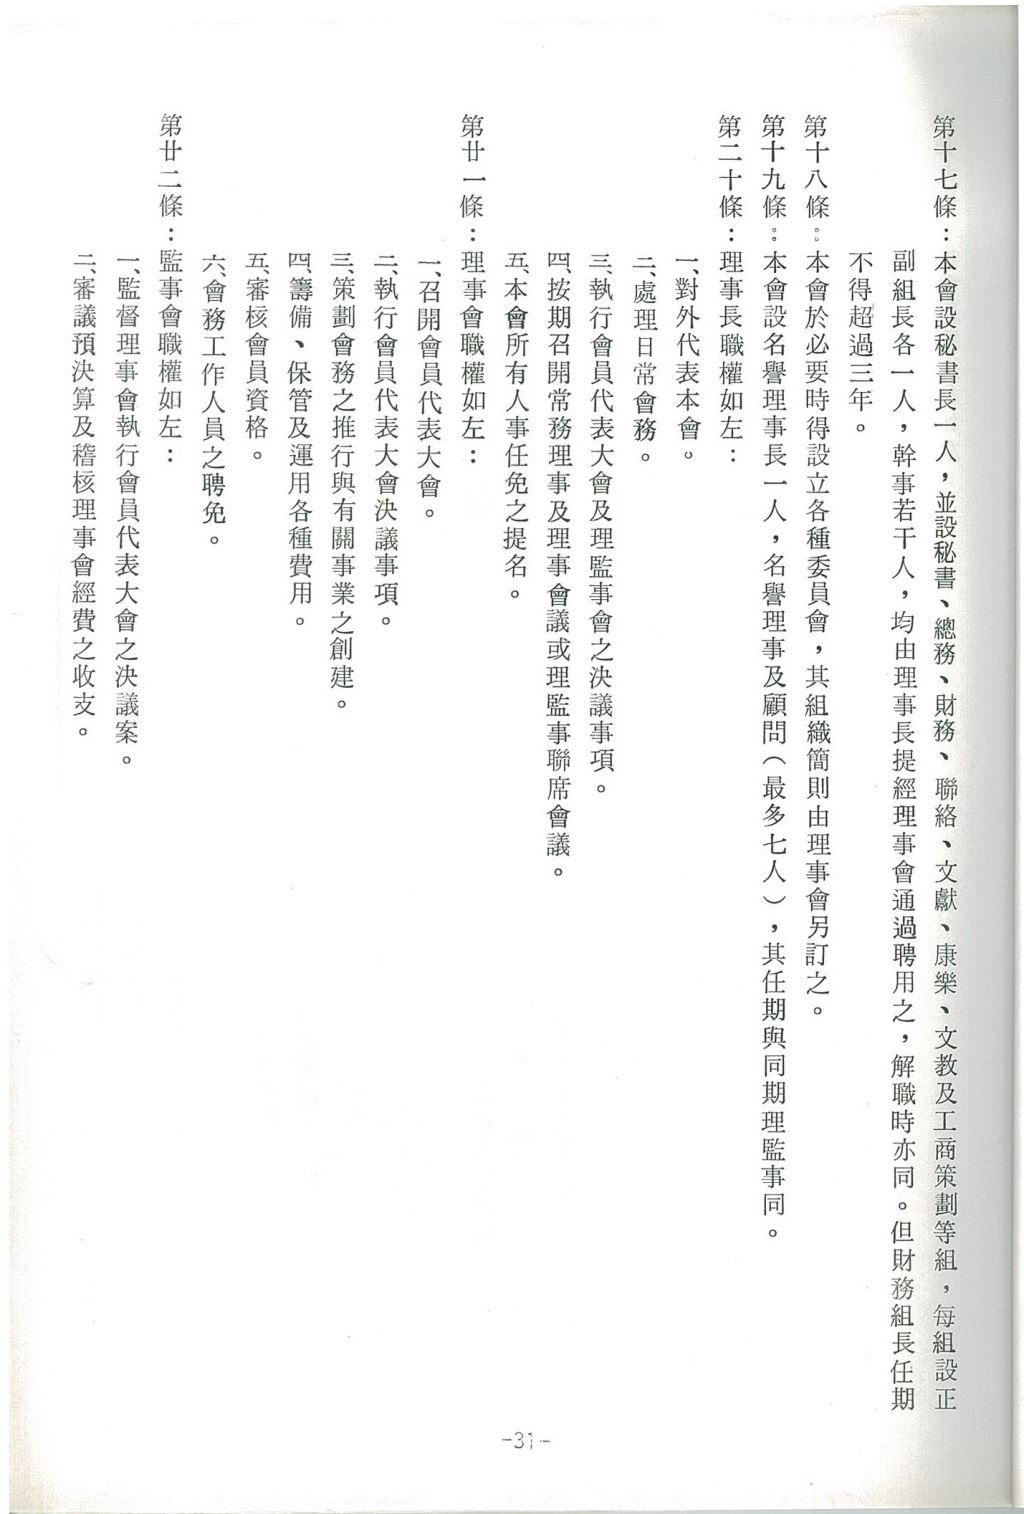 第十七條：本會設秘書長一人，並設秘書、總務、財務、聯絡、文獻、康樂、文教及工商策劃等組，每組設正
副組長各一人，幹事若干人，均由理事長提經理事會通過聘用之，解職時亦同。但財務組長任期
不得超過三年。
第十八條：本會於必要時得設立各種委員會，其組織簡則由理事會另訂之。
第十九條：本會設名譽理事長一人，名譽理事及顧問（最多七人），其任期與同期理監事同。
第二十條：理事長職權如左：
一、對外代表本會。
二、處理日常會務。
三、執行會員代表大會及理監事會之決議事項。
四、按期召開常務理事及理事會議或理監事聯席會議。
五、本會所有人事任免之提名。
第廿一條：理事會職權如左：
一、召開會員代表大會。
二、執行會員代表大會決議事項。
三、策劃會務之推行與有關事業之創建。
四、籌備、保管及運用各種費用。
五、審核會員資格。
六、會務工作人員之聘免。
第廿二條：監事會職權如左：
一、監督理事會執行會員代表大會之決議案。
二、審議預決算及稽核理事會經費之收支。
-31-